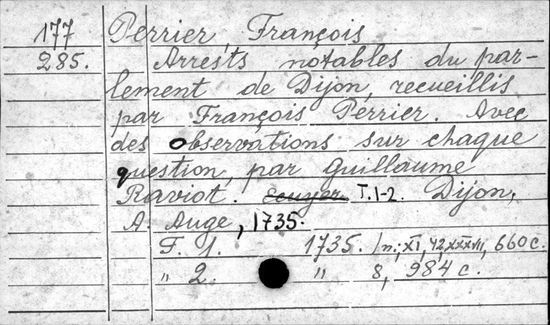 177 Perrier François
285. Arrests notables du par-
lement de Dijon, recueillis
par François Perrier. Avec
des observations sur chaque
question, par Guillaume
Raviot. Ecuyer T.1-2. Dijon,
A. Auge, 1735.
T. 1. 1735. /n.; XI, 42, XXXVII, 660 c.
„ 2. „ 8, 984 c.